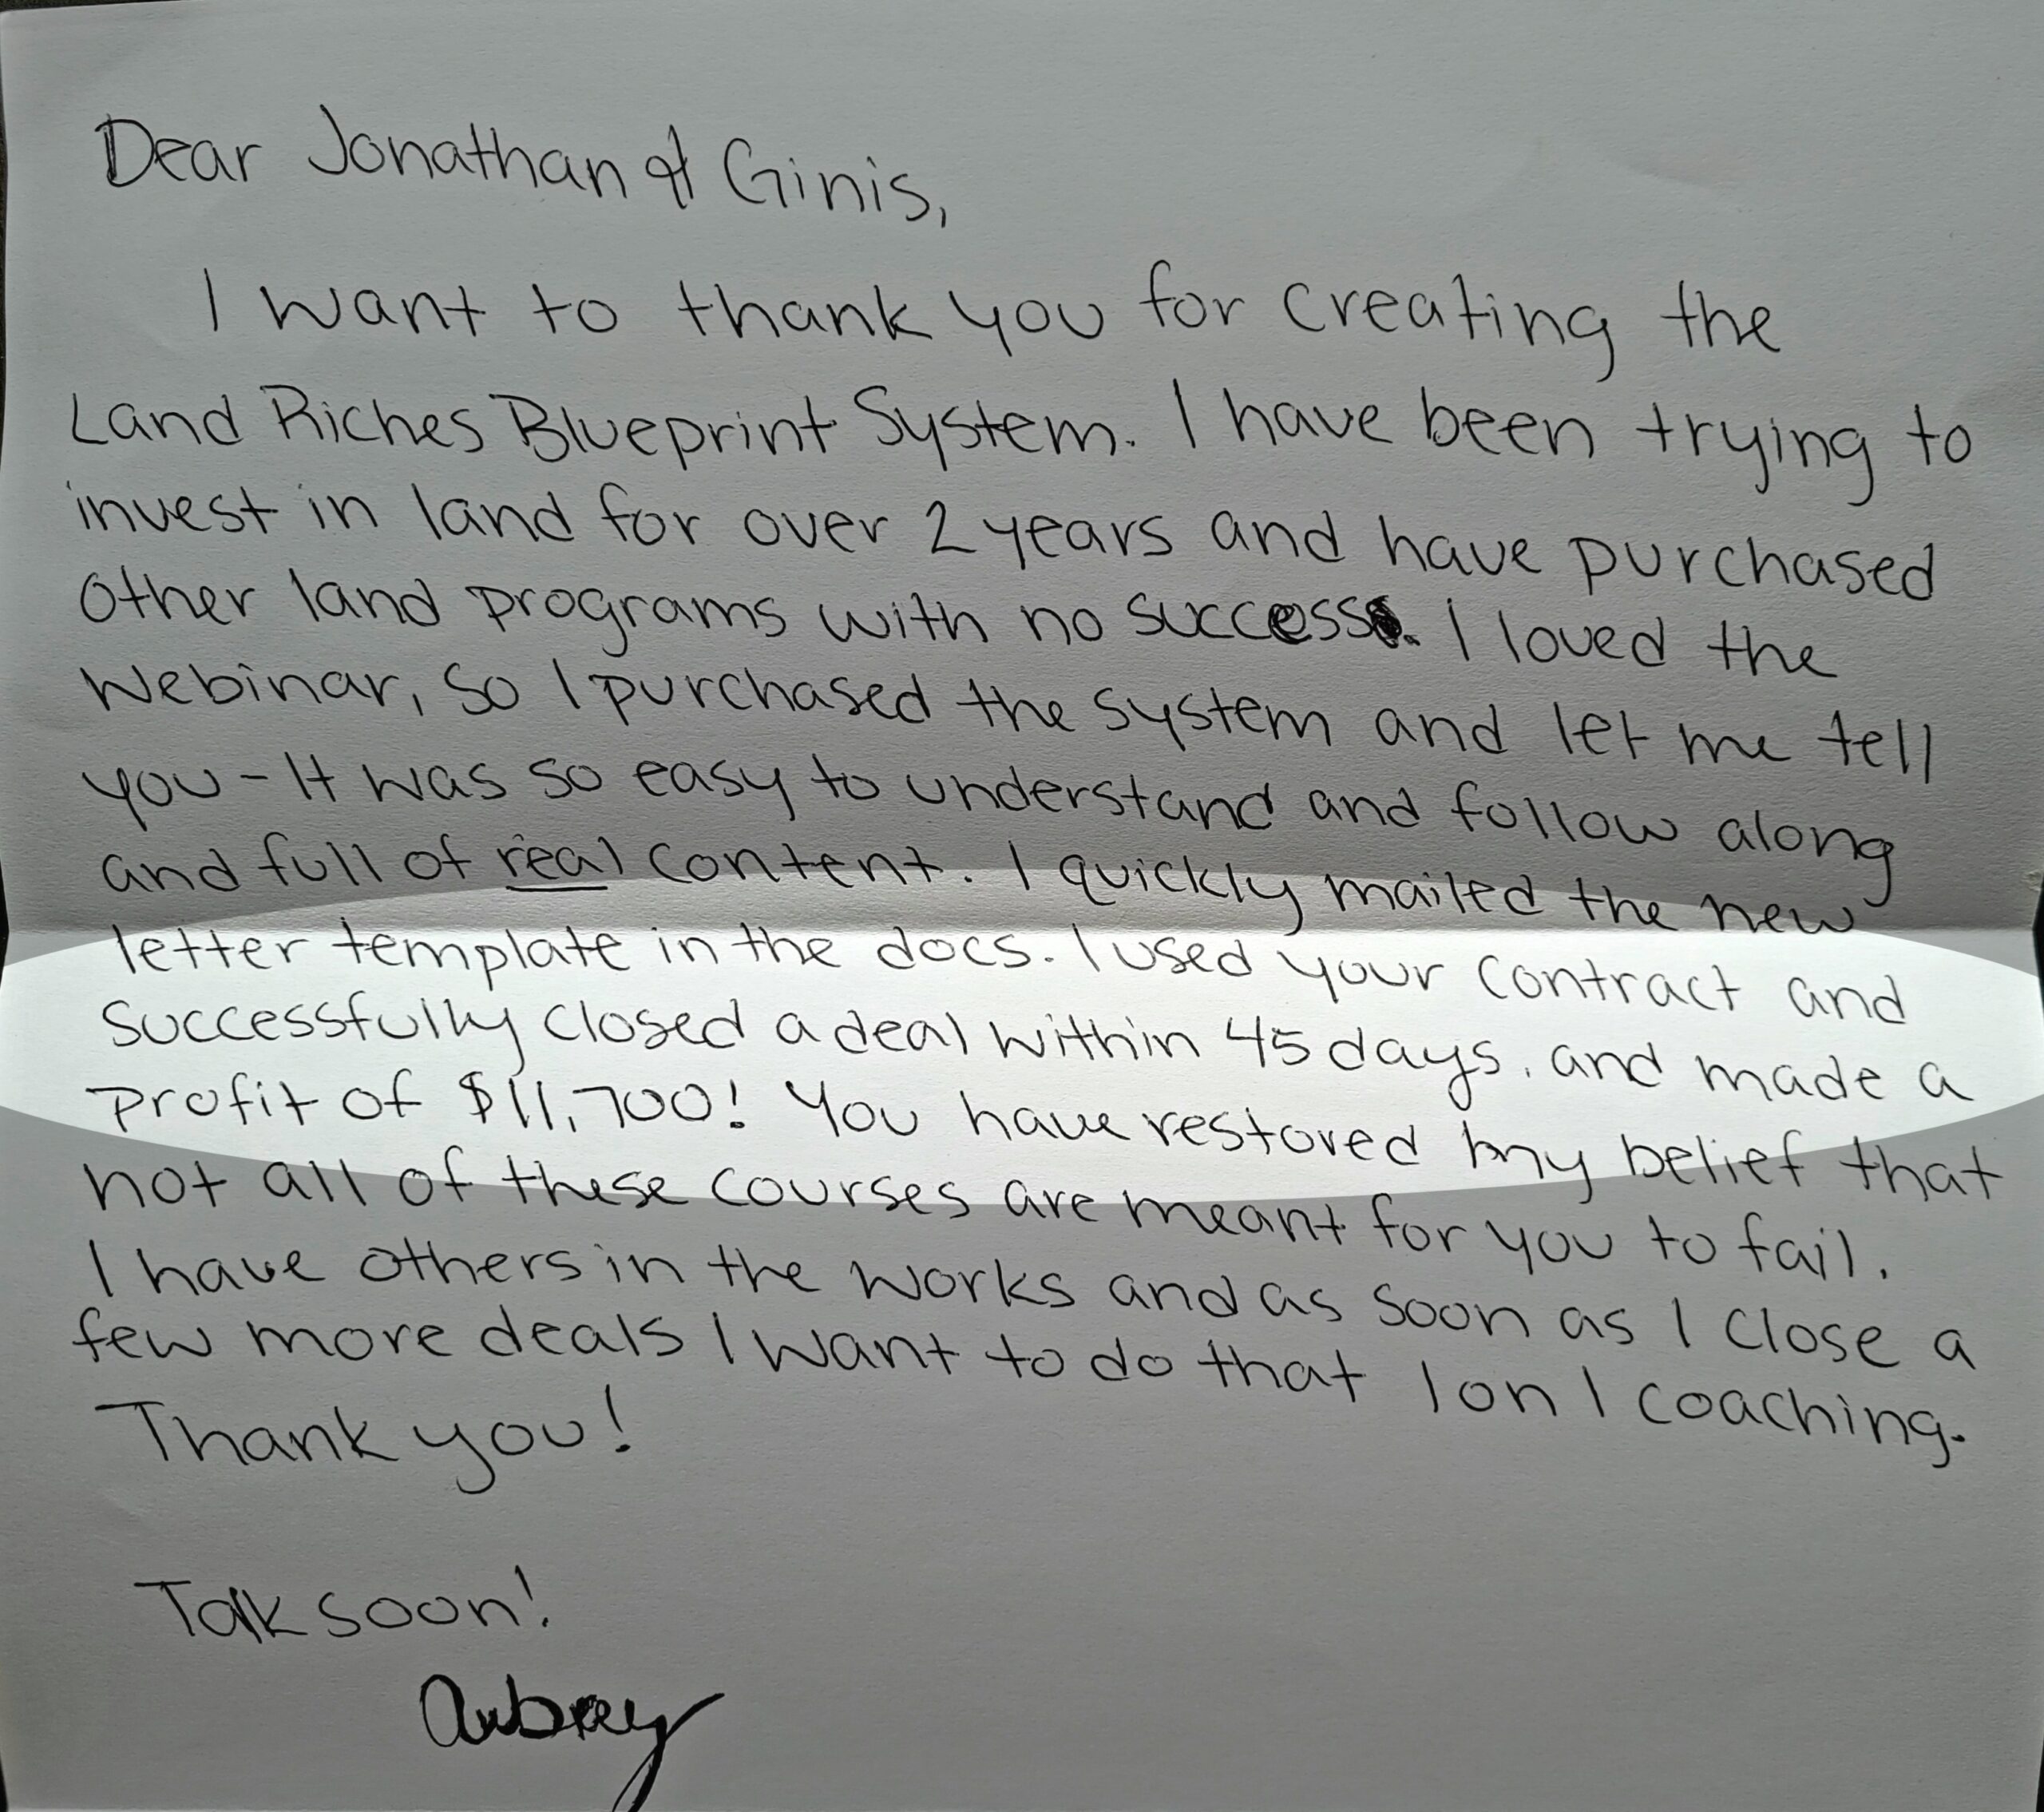 Dear Jonathan & Ginis,
I want to thank you for creating the
Land Riches Blueprint System. I have been trying to
invest in land for over 2 years and have purchased
other land programs with no success. I loved the
Webinar, so I purchased the system and let me tell
you - It was so easy to understand and follow along
and full of real content. I quickly mailed the new
letter template in the docs. I used your contract and
successfully closed a deal within 45 days, and made a
profit of $11,700! You have restored my belief that
not all of these courses are meant for you to fail.
I have others in the works and as soon as I close a
few more deals I want to do that 1 on 1 coaching.
Thank you!
Talk soon!
Aubrey